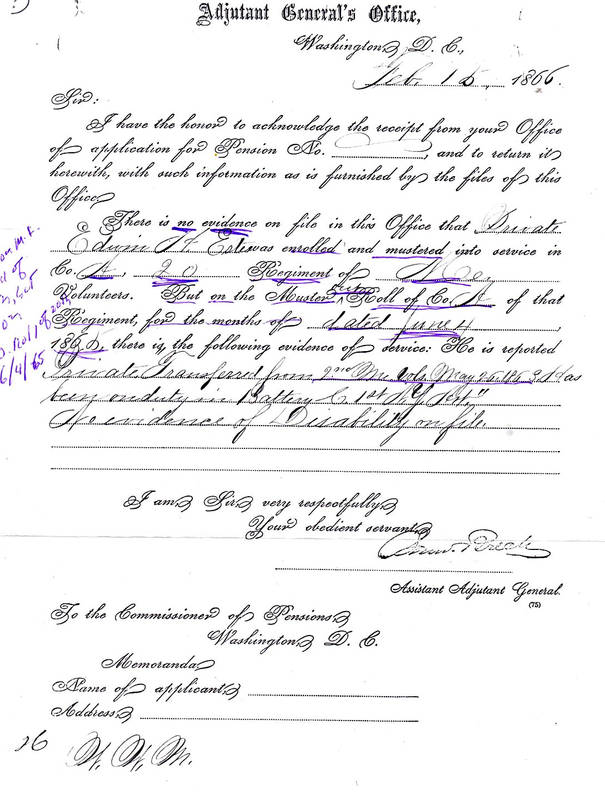 Adjutant General's Office,
Washington, D. C.,
Feb. 15, 1866.
Sir:
I have the honor to acknowledge the receipt from your Office
of application for Pension No. , and to return it
herewith, with such information as is furnished by the files of this
Office.
There is no evidence on file in this Office that Private
was enrolled and mustered into service in
Co. A, 20 Regiment of Me.
Volunteers. But on the Muster out Roll of Co. A of that
Regiment, for the months of dated June 4
1865, there is, the following evidence of service: He is reported
Private Transferred from 2nd Me. Vols. May 26. 1863 as
been on duty in Battery C 1st N.Y. "
No evidence of Disability on file.
I am, Sir, very respectfully,
Your obedient servant,
Assistant Adjutant General.
(75)
To the Commissioner of Pensions,
Washington, D. C.
Memoranda,
Name of applicant,
Address,
26
6/4/65